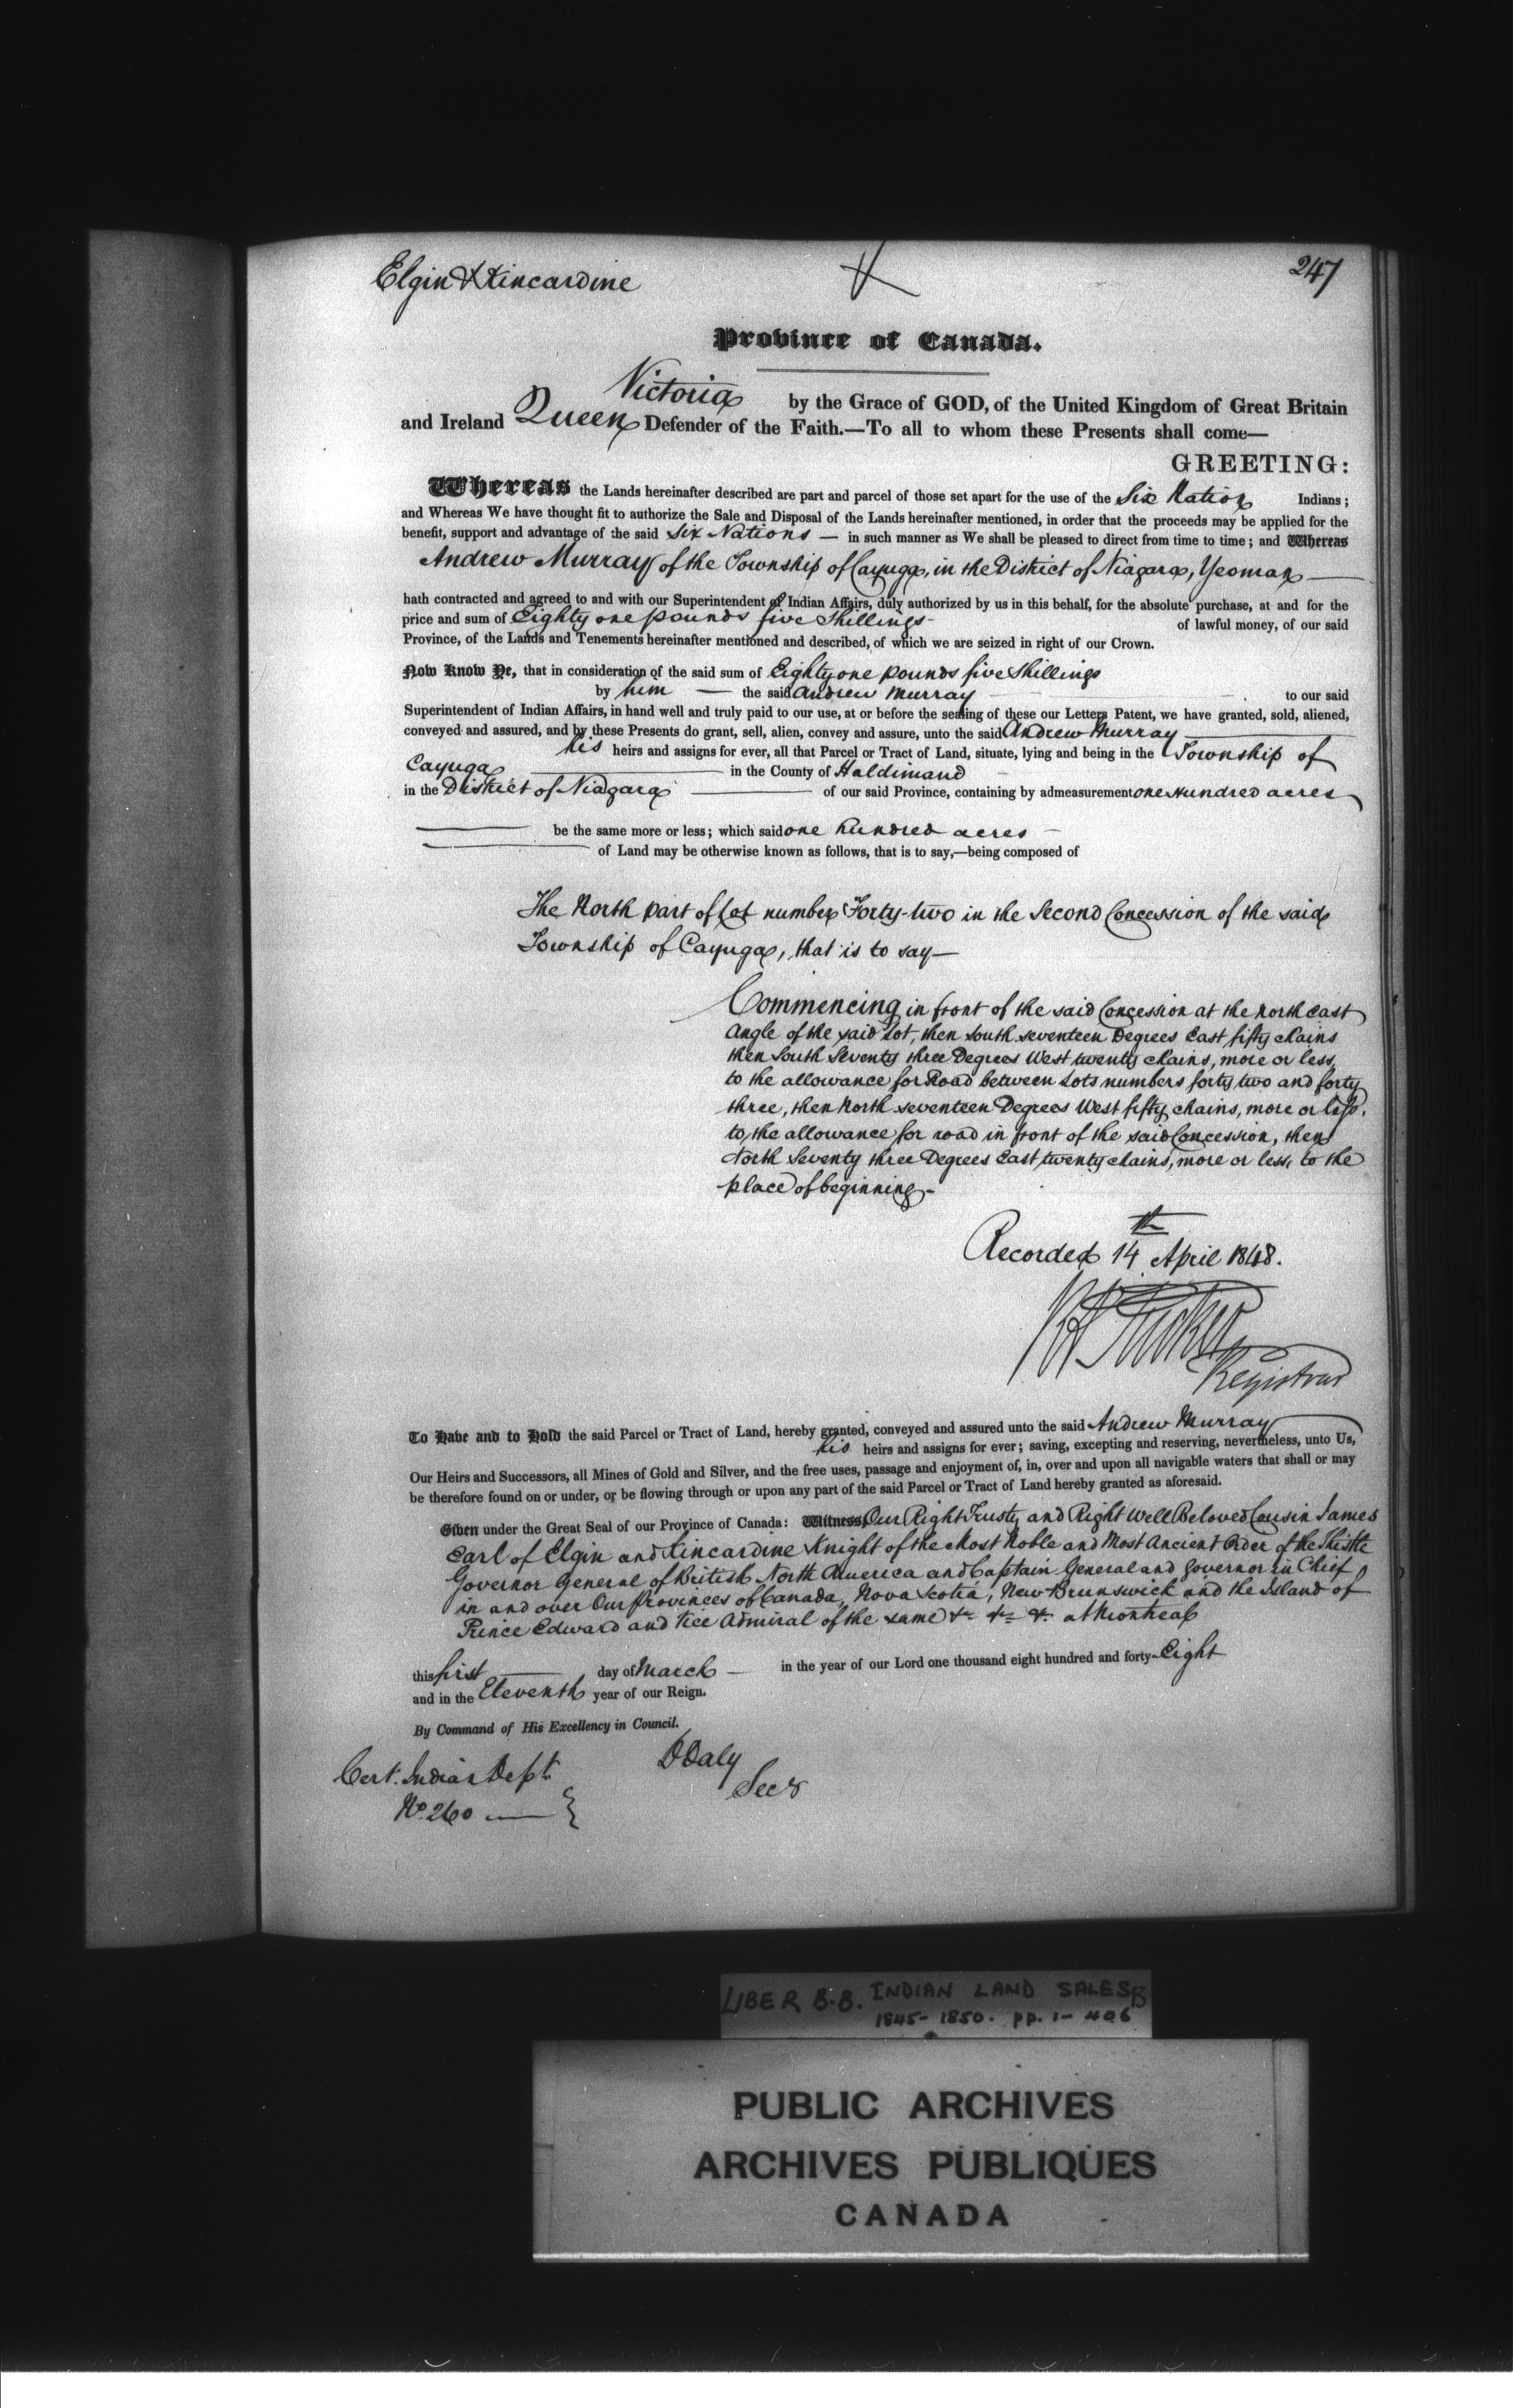 Elgin & Kincardine
247
Province of Canada.
Victoria by the Grace of GOD, of the United Kingdom of Great Britain
and Ireland Queen Defender of the Faith.—To all to whom these Presents shall come—
GREETING:
Whereas the Lands hereinafter described are part and parcel of those set apart for the use of the Six Nation Indians;
and Whereas We have thought fit to authorize the Sale and Disposal of the Lands hereinafter mentioned, in order that the proceeds may be applied for the
benefit, support and advantage of the said Six Nations — in such manner as We shall be pleased to direct from time to time; and Whereas
Andrew Murray of the Township of Cayuga, in the District of Niagara, Yeoman —
hath contracted and agreed to and with our Superintendent of Indian Affairs, duly authorized by us in this behalf, for the absolute purchase, at and for the
price and sum of Eighty one pounds five Shillings of lawful money, of our said
Province, of the Lands and Tenements hereinafter mentioned and described, of which we are seized in right of our Crown.
Now Know Ye, that in consideration of the said sum of Eighty one pounds five Shillings
by him — the said Andrew Murray to our said
Superintendent of Indian Affairs, in hand well and truly paid to our use, at or before the sealing of these our Letters Patent, we have granted, sold, aliened,
conveyed and assured, and by these Presents do grant, sell, alien, convey and assure, unto the said Andrew Murray —
his heirs and assigns for ever, all that Parcel or Tract of Land, situate, lying and being in the Township of
Cayuga — in the County of Haldimand
in the District of Niagara — of our said Province, containing by admeasurement one Hundred acres
— be the same more or less; which said one hundred acres —
— of Land may be otherwise known as follows, that is to say,—being composed of
The North part of Lot number Forty-two in the Second Concession of the said
Township of Cayuga, that is to say—
Commencing in front of the said Concession at the North East
Angle of the said Lot, then South seventeen Degrees East fifty chains
then South Seventy three Degrees West twenty chains, more or less,
to the allowance for Road between Lots numbers forty two and forty
three, then North seventeen Degrees West fifty chains, more or less,
to the allowance for road in front of the said Concession, then
North Seventy three Degrees East twenty chains, more or less, to the
place of beginning.
Recorded 14th April 1848.
Tucker
Registrar
To Have and to Hold the said Parcel or Tract of Land, hereby granted, conveyed and assured unto the said Andrew Murray
his heirs and assigns for ever; saving, excepting and reserving, nevertheless, unto Us,
Our Heirs and Successors, all Mines of Gold and Silver, and the free uses, passage and enjoyment of, in, over and upon all navigable waters that shall or may
be therefore found on or under, or be flowing through or upon any part of the said Parcel or Tract of Land hereby granted as aforesaid.
Given under the Great Seal of our Province of Canada: Witness, Our Right Trusty and Right Well Beloved Cousin James
Earl of Elgin and Kincardine Knight of the Most Noble and Most Ancient Order of the Thistle
Governor General of British North America and Captain General and Governor in Chief
in and over Our Provinces of Canada, Nova Scotia, New Brunswick and the Island of
Prince Edward and Vice Admiral of the same &c &c &c at Montreal
this first — day of March — in the year of our Lord one thousand eight hundred and forty-Eight
and in the Eleventh year of our Reign.
By Command of His Excellency in Council.
D Daly
Secy
Cert. Indian Dept.
No. 260 —
LIBER B.B. INDIAN LAND SALES B
1845-1850. pp. 1-406
PUBLIC ARCHIVES
ARCHIVES PUBLIQUES
CANADA